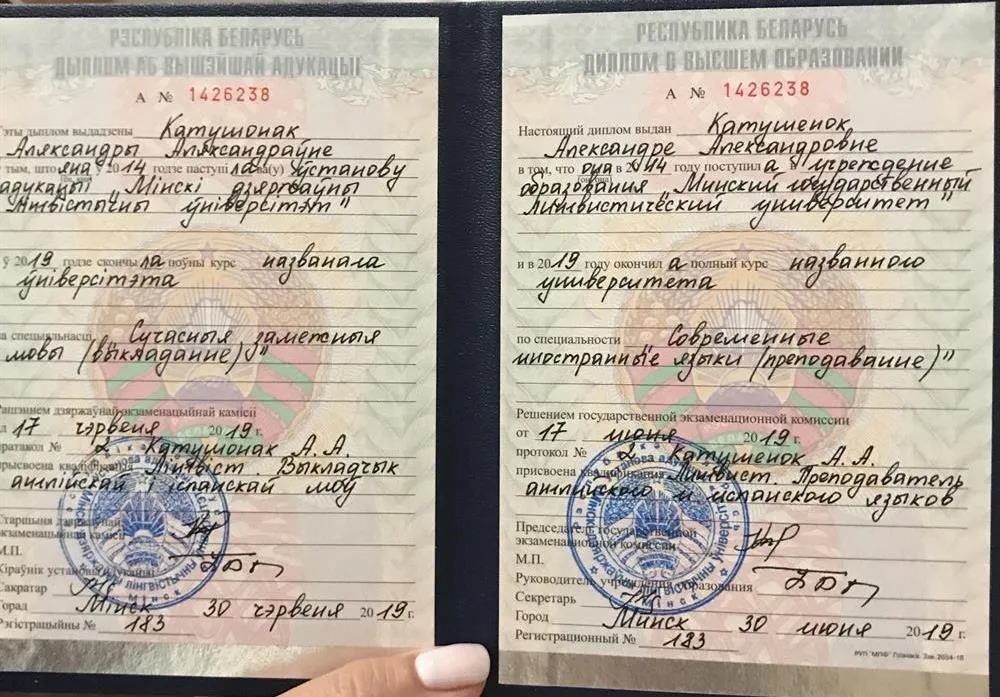 РЭСПУБЛІКА БЕЛАРУСЬ
ДЫПЛОМ АБ ВЫШЭЙШАЙ АДУКАЦЫІ
А № 1426238
гэты дыплом выдадзены Катушонак
Аляксандры Аляксандраўне
тым, што яна ў 2014 годзе паступіла ва(у) ўстанову
адукацыі "Мінскі дзяржаўны
лінгвістычны ўніверсітэт"
ў 2019 годзе скончыла поўны курс названага
ўніверсітэта
па спецыяльнасці "Сучасныя замежныя
мовы (выкладанне)"
Рашэннем дзяржаўнай экзаменацыйнай камісіі
ад 17 чэрвеня 2019 г.
пратакол № 2 Катушонак А. А.
прысвоена кваліфікацыя Лінгвіст. Выкладчык
англійскай і іспанскай моў
Старшыня дзяржаўнай
экзаменацыйнай камісіі
М.П.
Кіраўнік установы адукацыі
Сакратар
Горад Мінск 30 чэрвеня 2019 г.
Рэгістрацыйны № 183
РЕСПУБЛИКА БЕЛАРУСЬ
ДИПЛОМ О ВЫСШЕМ ОБРАЗОВАНИИ
А № 1426238
Настоящий диплом выдан Катушенок
Александре Александровне
в том, что она в 2014 году поступила в учреждение
(он, она)
образования "Минский государственный
лингвистический университет"
и в 2019 году окончила полный курс названного
университета
по специальности "Современные
иностранные языки (преподавание)"
Решением государственной экзаменационной комиссии
от 17 июня 2019 г.
протокол № 2 Катушенок А. А.
присвоена квалификация Лингвист. Преподаватель
английского и испанского языков
Председатель государственной
экзаменационной комиссии
М.П.
Руководитель учреждения образования
Секретарь
Город Минск 30 июня 2019 г.
Регистрационный № 183